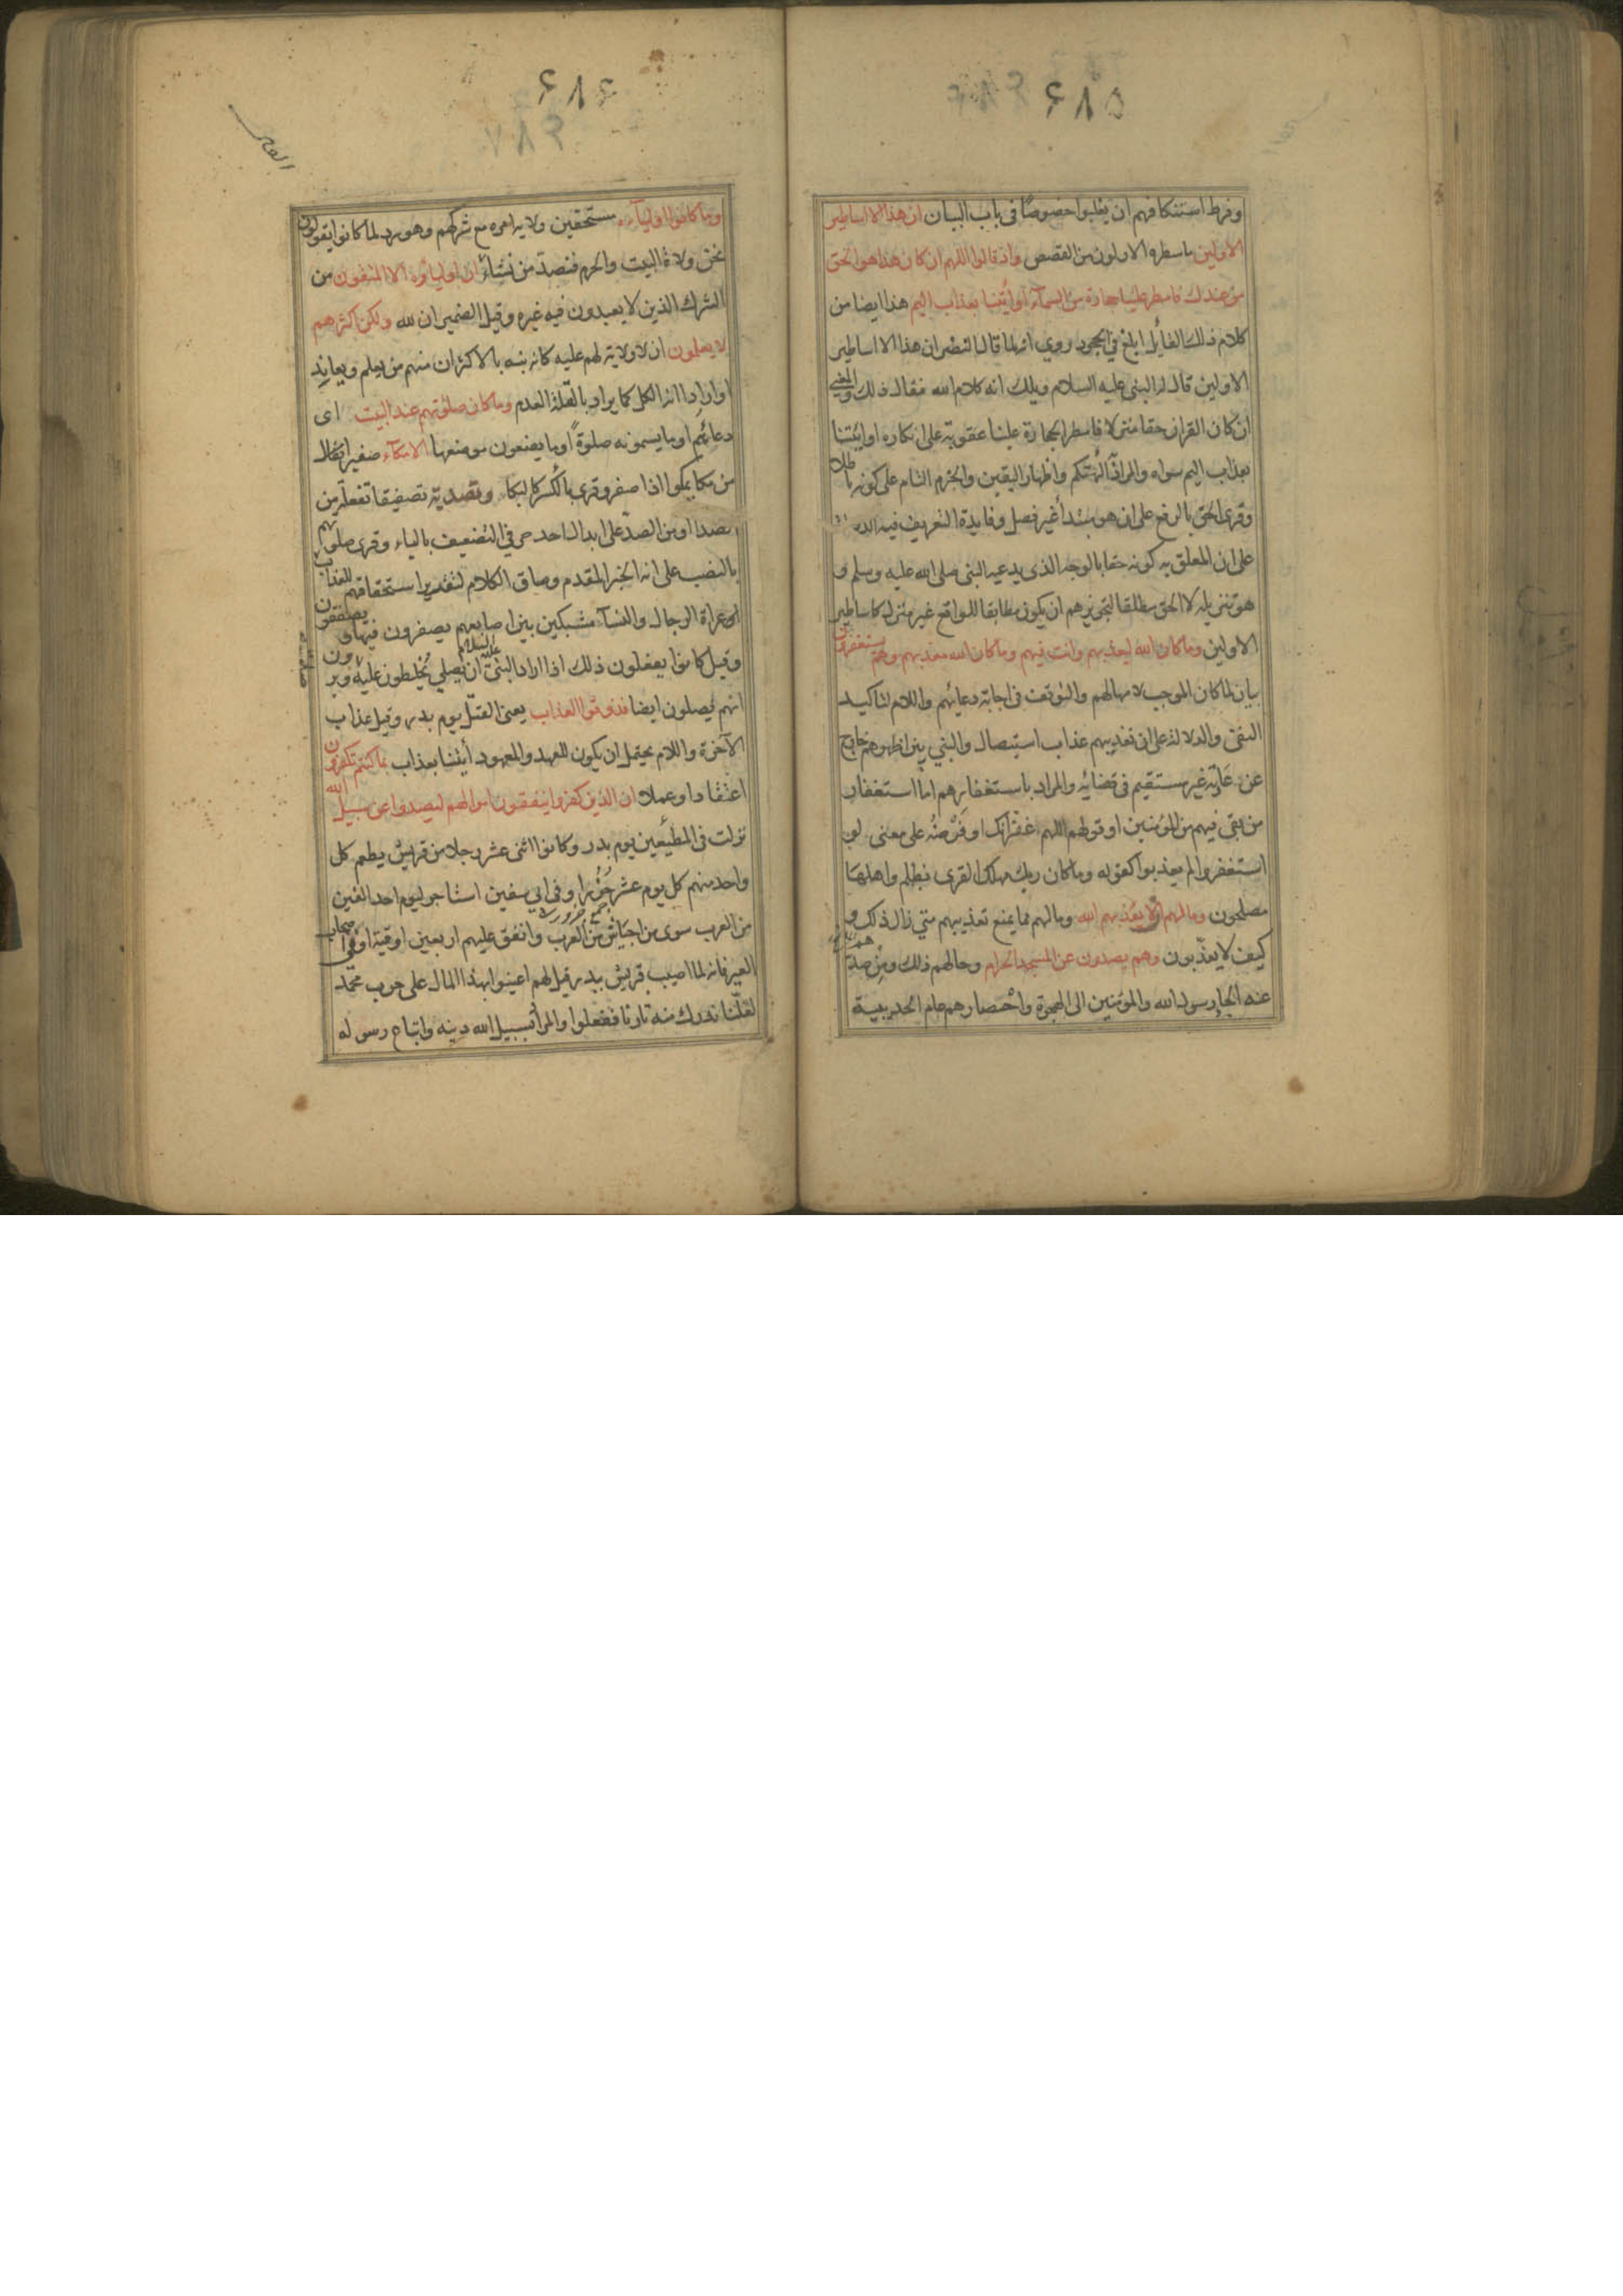 ٤٨٥
وفرط استنكافهم ان يغلبوا خصوصًا فى باب البيان ان هذا الا اساطير
الاولين ما سطره الاولون من القصص واذ قالوا اللهم ان كان هذا هو الحق
من عندك فامطر علينا حجارة من السمآء او ائتنا بعذاب اليم هذا ايضا من
كلام ذلك القايل ابلغ في الجحود روي انه لما قال النضر ان هذا الا اساطير
الاولين قال له النبى عليه السلام ويلك انه كلام الله فقال ذلك والمعنى
ان كان القران حقا منزلا فامطر الحجارة علينا عقوبة على انكاره او ائتنا
بعذاب اليم سواه والمراد التهكم واظهار اليقين والجزم التام على كونه باطلا
وقرى الحق بالرفع على ان هو مبتدأ غير فصل وفايدة التعريف فيه الدلالة
على ان المعلق به كونه حقا بالوجه الذى يدعيه النبى صلى الله عليه وسلم و
هو تنزيله لا الحق مطلقا لتجويزهم ان يكون مطابقا للواقع غير منزل كاساطير
الاولين وما كان الله ليعذبهم وانت فيهم وما كان الله معذبهم وهم يستغفرون
بيان لما كان الموجب لامهالهم والتوقف فى اجابة دعائهم واللام لتاكيد
النفى والدلالة على ان تعذيبهم عذاب استيصال والنبي بين اظهرهم خارج
عن عادته غير مستقيم فى قضائه والمراد باستغفارهم اما استغفار
من بقى فيهم من المؤمنين او قولهم اللهم غفرانك او فرضه على معنى لو
استغفروا لم يعذبوا كقوله وما كان ربك مهلك القرى بظلم واهلها
مصلحون وما لهم الا يعذبهم الله وما لهم مما يمنع تعذيبهم متى زال ذلك و
كيف لا يعذبون وهم يصدون عن المسجد الحرام وحالهم ذلك ومن صدهم
عنه الجا رسول الله والمؤمنين الى الهجرة واحصارهم عام الحديبية
٤٨٤
وما كانوا اوليآءه مستحقين ولاية امره مع شركهم وهو رد لما كانوا يقولون
نحن ولاة البيت والحرم فنصد من نشاء ان اولياؤه الا المتقون من
الشرك الذين لا يعبدون فيه غيره وقيل الضميران لله ولكن اكثرهم
لا يعلمون ان لا ولاية لهم عليه كانه نبه بالاكثر ان منهم من يعلم ويعاند
او اراد به الكل كما يراد بالقلة العدم وما كان صلوتهم عند البيت اى
دعائهم او ما يسمونه صلوة او ما يضعون موضعها الا مكآء صفيرا فعال
من مكا يمكوا اذا صفر وقرى بالكسر كالبكا وتصدية تصفيقا تفعلة من
الصدا او من الصد على ابدال احد حرفى التضعيف بالياء وقرى صلوتهم
بالنصب على انه الخبر المقدم وساق الكلام لتقدير استحقاقهم للعذاب
عراة الرجال والنسآء مشبكين بين اصابعهم يصفرون فيها ويصفقون
وقيل كانوا يفعلون ذلك اذا اراد النبى عليه السلام ان يصلي يخلطون عليه ويرون
انهم يصلون ايضا فذوقوا العذاب يعنى القتل يوم بدر وقيل عذاب
الآخرة واللام يحتمل ان يكون للعهد والمعهود أئتنا بعذاب بما كنتم تكفرون
اعتقادا وعملا ان الذين كفروا ينفقون اموالهم ليصدوا عن سبيل الله
نزلت فى المطعمين يوم بدر وكانوا اثنى عشر رجلا من قريش يطعم كل
واحد منهم كل يوم عشر جُزُرا وفى ابي سفين استاجر ليوم احد الفين
من العرب سوى من اجتاش من العرب وانفق عليهم اربعين اوقية او فى اصحاب
العير فانه لما اصيب قريش ببدر قيل لهم اعينوا بهذا المال على حرب محمد
لعلنا ندرك منه ثارنا ففعلوا والمراد بسبيل الله دينه واتباع رسوله